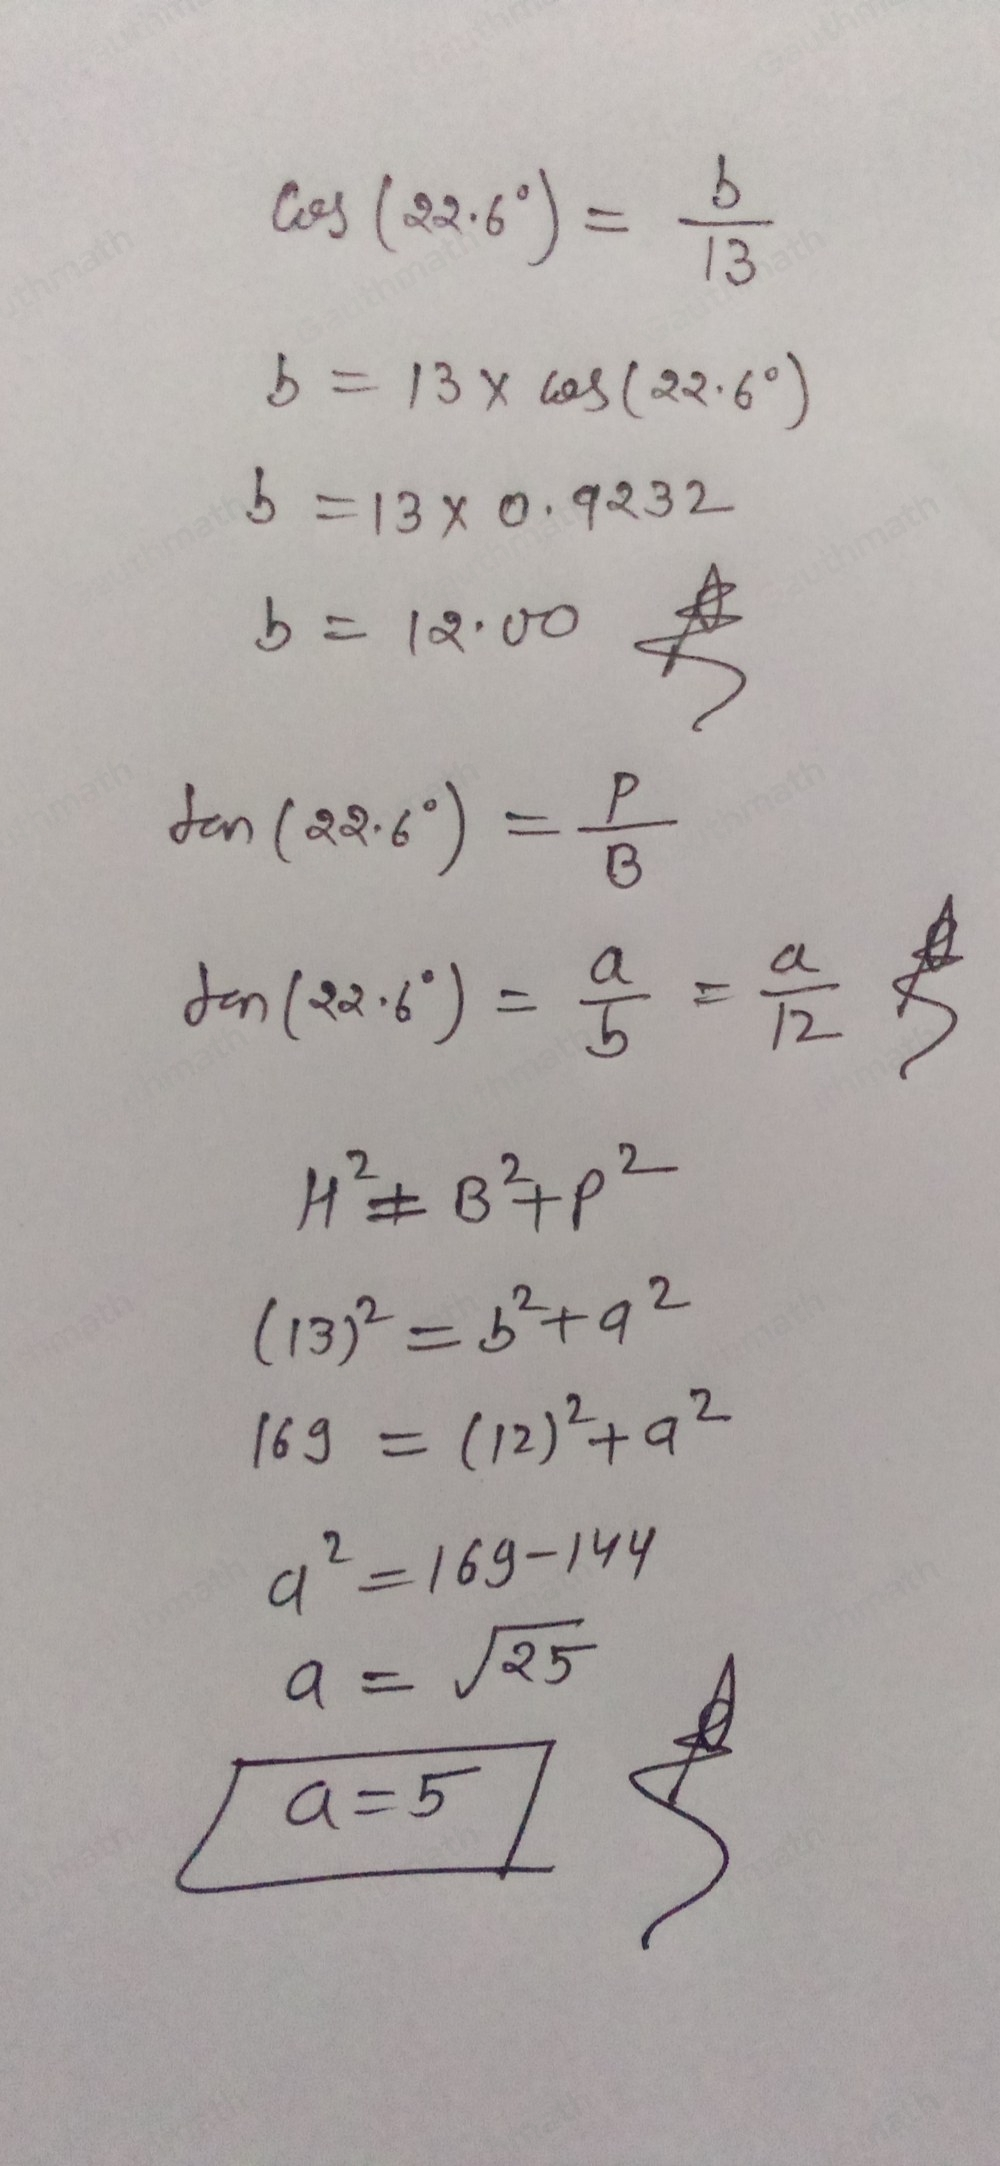 Cos (22.6°) = b/13
b = 13 × cos (22.6°)
b = 13 × 0.9232
b = 12.00
tan (22.6°) = P/B
tan (22.6°) = a/b = a/12
H² = B² + P²
(13)² = b² + a²
169 = (12)² + a²
a² = 169 - 144
a = √25
a = 5